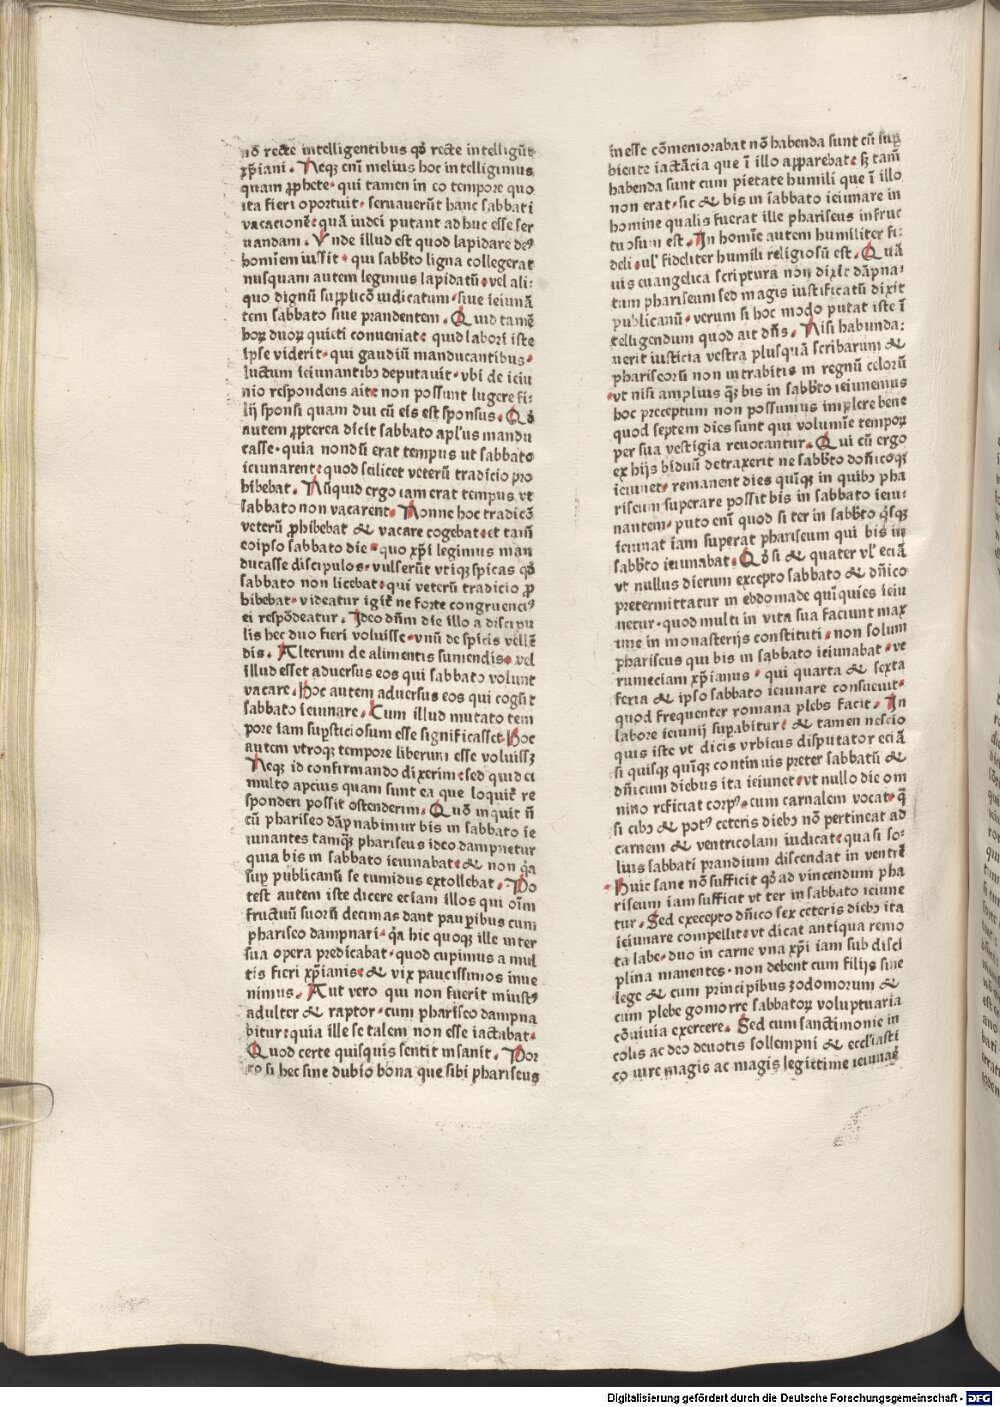 nō recte intelligentibus qđ recte intelligūt
xp̄iani. Neqꝫ enī melius hoc intelligimus
quam ꝓphete· qui tamen in eo tempore quo
ita fieri oportuit· seruauerūt hanc sabbati
vacacionē· quā iudei putant adhuc esse ser
uandam. Vnde illud est quod lapidare deꝰ
hominem iussit· qui sabb̄to ligna collegerat
nusquam autem legimus lapidatū· vel ali-
quo dignū supplicō iudicatum· siue ieiunā
tem sabbato siue prandentem. Quid tamē
hoꝝ duoꝝ quieti conueniat· quid labori iste
ipse viderit· qui gaudiū manducantibus·
luctum ieiunantibꝰ deputauit· vbi de ieiu
nio respondens ait· non possunt lugere fi-
lij sponsi quam diu cū eis est sponsus. Qđ
autem ꝓpterea dicit sabbato apl'us mandu
casse· quia nondū erat tempus ut sabbato
ieiunarent· quod scilicet veterū tradicio pro
hibebat. Nūquid ergo iam erat tempus vt
sabbato non vacarent. Nonne hoc tradicō
veterū ꝓhibebat & vacare cogebat· et tamē
eoipso sabbato die· quo xp̄i legimus man
ducasse discipulos· vulserūt vtiqꝫ spicas qđ
sabbato non licebat· qui veterū tradicio ꝓ
hibebat· videatur igit̄ ne forte congruenciꝰ
ei respōdeatur. Ideo dn̄m die illo a discipu
lis hec duo fieri voluisse· vnū de spicis vellē
dis. Alterum de alimentis sumendis· vel
illud esset aduersus eos qui sabbato volunt
vacare. Hoc autem aduersus eos qui cogūt
sabbato ieiunare. Cum illud mutato tem
pore iam suꝑsticiosum esse significasset Hoc
autem vtroqꝫ tempore liberum esse voluissꝫ
Neqꝫ id confirmando dixerim· sed quid ei
multo apcius quam sunt ea que loquit̄ re
sponderi possit ostenderim. Quō inquit n̄
cū phariseo dāpnabimur bis in sabbato ie
iunantes tamqꝫ phariseus ideo dampnetur
quia bis in sabbato ieiunabat· & non q̄a
suꝑ publicanū se tumidus extollebat. Po
test autem iste dicere eciam illos qui oīm
fructuū suoꝝ decimas dant pauꝑibus cum
phariseo dampnari· q̄a hic quoqꝫ ille inter
sua opera predicabat· quod cupimus a mul
tis fieri xp̄ianis· & vix paucissimos inue
nimus. Aut vero qui non fuerit iniustꝰ
adulter & raptor· cum phariseo dampna
bitur· quia ille se talem non esse iactabat·
Quod certe quisquis sentit insanit. Por
ro si hec sine dubio bona que sibi phariseus
inesse cōmemorabat nō habenda sunt cū suꝑ
biente iactācia que ī illo apparebat· sꝫ tamē
habenda sunt cum pietate humili que ī illo
non erat· sic & bis in sabbato ieiunare in
homine qualis fuerat ille phariseus infruc
tuosum est. In homīe autem humiliter fi-
deli· ul' fideliter humili religiosū est. Quā
uis euangelica scriptura non dixit dāpna-
tum phariseum sed magis iustificatū dixit
publicanū· verum si hoc modo putat iste ī
telligendum quod ait dn̄s. Nisi habunda-
uerit iusticia vestra plusquā scribarum &
phariseorū non intrabitis in regnū celorū
vt nisi amplius qꝫ bis in sabb̄to ieiunemus
hoc preceptum non possumus implere bene
quod septem dies sunt qui volumīe tempoꝝ
per sua vestigia reuocantur. Qui cū ergo
ex hijs biduū detraxerit ne sabb̄to dn̄icoqꝫ
ieiunet· remanent dies quīqꝫ in quibꝰ pha
riseum superare possit bis in sabbato ieiu-
nantem· puto enī quod si ter in sabb̄to q̄sqꝫ
ieiunat iam superat phariseum qui bis in
sabb̄to ieiunabat. Qđ si & quater vl' eciā
vt nullus dierum excepto sabbato & dn̄ico
pretermittatur in ebdomade quīquies ieiu
netur· quod multi in vita sua faciunt max
ime in monasterijs constituti· non solum
phariseus qui bis in sabbato ieiunabat· ve
rumeciam xp̄ianus· qui quarta & sexta
feria & ipso sabbato ieiunare consueuit·
quod frequenter romana plebs facit. In
labore ieiunij suꝑabitur· & tamen nescio
quis iste vt dicis vrbicus disputator eciā
si quisqꝫ quīqꝫ continuis preter sabbatū &
dn̄icum diebus ita ieiunet· vt nullo die om
nino reficiat corpꝰ· cum carnalem vocat· q̄
si cibꝰ & potꝰ ceteris diebꝰ nō pertineat ad
carnem & ventricolam iudicat· quasi so-
lius sabbati prandium discendat in ventrē
Huic sane nō sufficit qđ ad vincendum pha
riseum iam sufficit vt ter in sabbato ieiune
tur. Sed excepto dn̄ico sex ceteris diebꝰ ita
ieiunare compellit· vt dicat antiqua remo
ta labe· duo in carne vna xp̄i iam sub disci
plina manentes· non debent cum filijs sine
lege & cum principibus zodomorum &
cum plebe gomorre sabbatoꝝ voluptuaria
cōuiuia exercere. Sed cum sanctimonie in
colis ac deo deuotis sollempni & eccl'iasti
co iure magis ac magis legittime ieiunaē
Digitalisierung gefördert durch die Deutsche Forschungsgemeinschaft - DFG